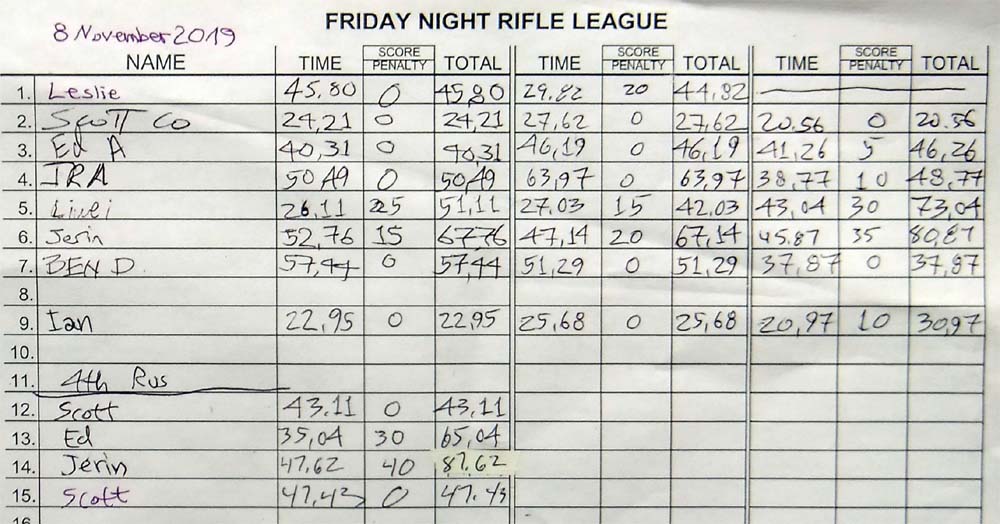 FRIDAY NIGHT RIFLE LEAGUE
8 November 2019
NAME TIME SCORE PENALTY TOTAL TIME SCORE PENALTY TOTAL TIME SCORE PENALTY TOTAL
1. Leslie 45.80 0 45,80 29.82 20 44,82
2. Scott Co 24,21 0 24,21 27,62 0 27,62 20.56 0 20.56
3. Ed A 40,31 0 40,31 46,19 0 46,19 41,26 5 46,26
4. IRA 50,49 0 50,49 63,97 0 63,97 38,77 10 48,77
5. Liwei 26,11 25 51,11 27.03 15 42.03 43,04 30 73,04
6. Jerin 52,76 15 67,76 47,14 20 67,14 45.87 35 80,87
7. BEN D. 57,44 0 57,44 51,29 0 51,29 37,87 0 37,87
8.
9. Ian 22,95 0 22,95 25,68 0 25,68 20,97 10 30,97
10.
11. 4th Rus
12. Scott 43.11 0 43,11
13. Ed 35,04 30 65,04
14. Jerin 47.62 40 87.62
15. Scott 47,43 0 47.43
16.